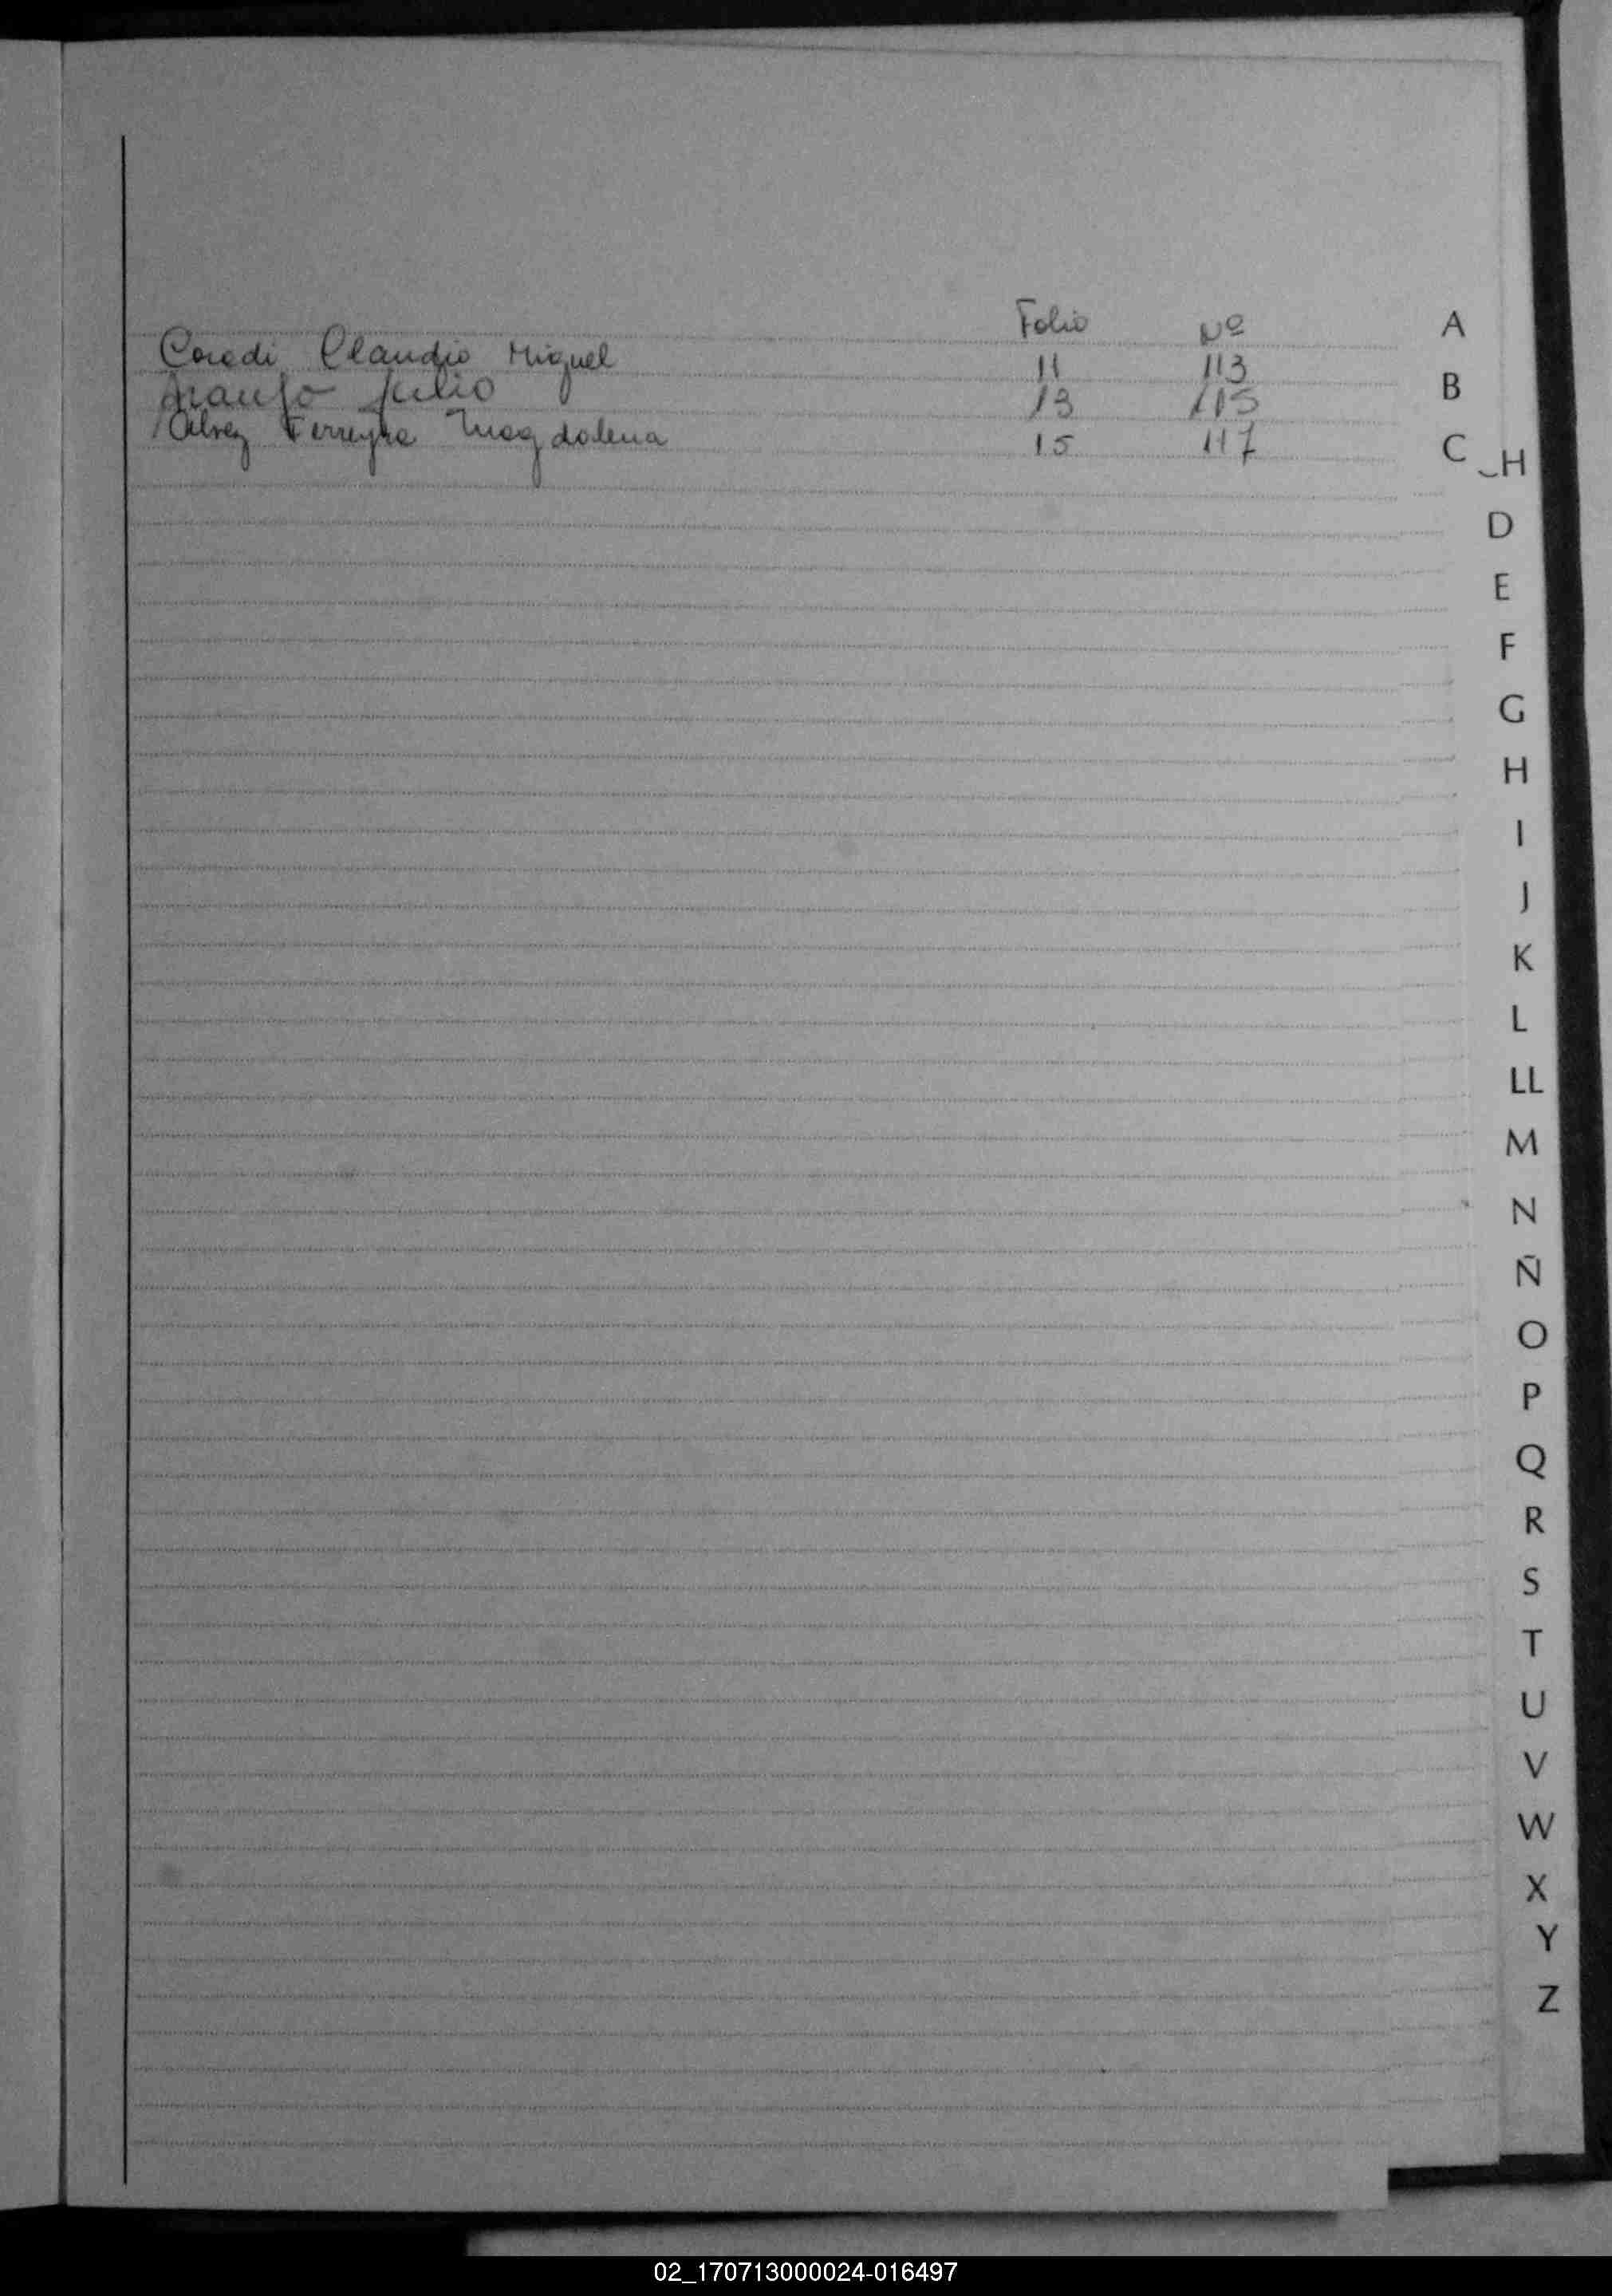 Folio Nº
Coradi Claudio Miguel 11 113
Araujo Julio 13 115
Alvez Ferreyra Magdalena 15 117
A
B
C
-H
D
E
F
G
H
I
J
K
L
LL
M
N
Ñ
O
P
Q
R
S
T
U
V
W
X
Y
Z
02_170713000024-016497